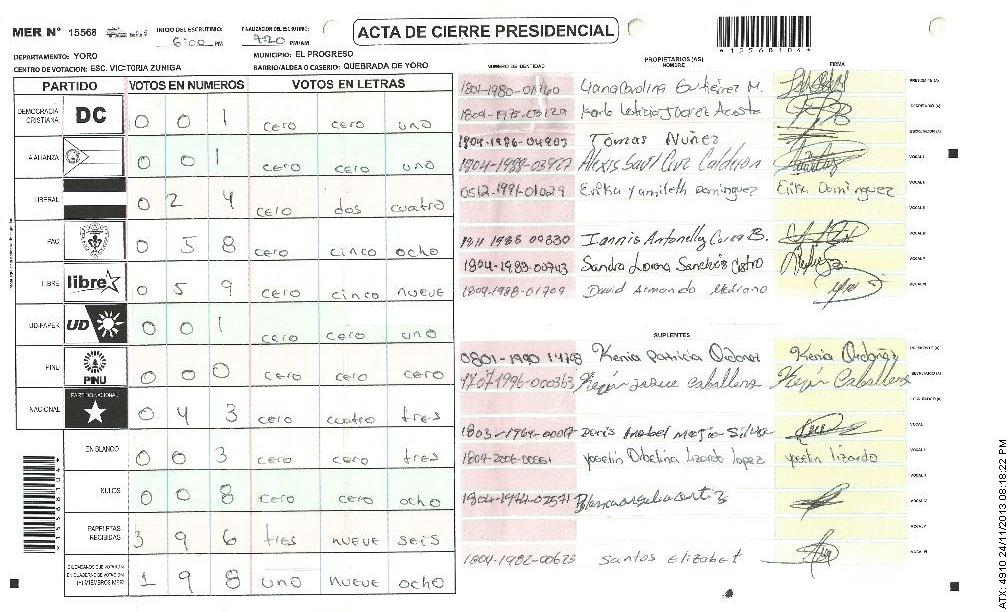 MER N° 15568 INICIO DEL ESCRUTINIO: 6:00 PM FINALIZACION DEL ESCRUTINIO: 7:20 PM/AM ACTA DE CIERRE PRESIDENCIAL
DEPARTAMENTO: YORO MUNICIPIO: EL PROGRESO
CENTRO DE VOTACION: ESC. VICTORIA ZUNIGA BARRIO/ALDEA O CASERIO: QUEBRADA DE YORO
PARTIDO VOTOS EN NUMEROS VOTOS EN LETRAS
DEMOCRACIA CRISTIANA DC 0 0 1 cero cero uno
ALIANZA 0 0 1 cero cero uno
LIBERAL 0 2 4 cero dos cuatro
PAC 0 5 8 cero cinco ocho
LIBRE libre 0 5 9 cero cinco nueve
UD-FAPER UD 0 0 1 cero cero uno
PINU PINU 0 0 0 cero cero cero
NACIONAL PARTIDO NACIONAL 0 4 3 cero cuatro tres
EN BLANCO 0 0 3 cero cero tres
NULOS 0 0 8 cero cero ocho
PAPELETAS RECIBIDAS 3 9 6 tres nueve seis
1 9 8 uno nueve ocho
PROPIETARIOS (AS)
NUMERO DE IDENTIDAD NOMBRE FIRMA
Gutierrez M. PRESIDENTE (A)
Karla Leticia Juarez Acosta SECRETARIO (A)
1804-1986-04903 Tomas Nuñez ESCRUTADOR (A)
1804-1988-03977 Alexis Saul Cruz Calderon VOCAL I
0512-1991-01029 Erika Yamileth Dominguez Erika Dominguez VOCAL II
1811 1988 00830 Iannis Antonella B.
1804-1983-00743 Sandra Lorena Sanchez Castro
1804-1988-01709 David Armando Medrano
SUPLENTES
0801-1990 Kenia Patricia Ordoñez Kenia Ordoñez PRESIDENTE (A)
1707-1996-000363 Caballero Caballero SECRETARIO (A)
Doris Anabel Mejia Silva VOCAL I
Yoselin Lizardo Lopez Yoselin Lizardo
1804-1974-02571
1804-1982-00673 Santos Elizabet
ATX: 4910 24/11/2013 08:18:22 PM